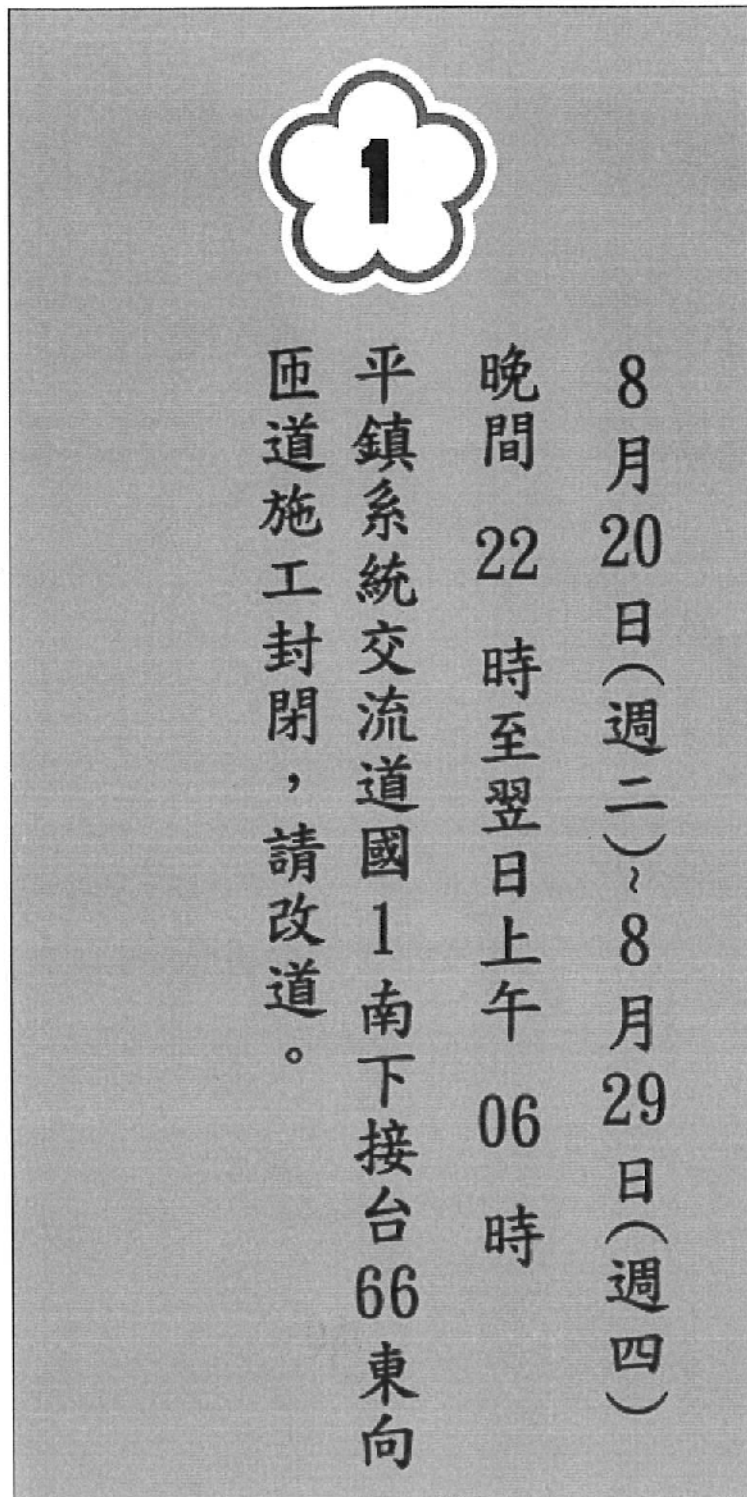 1
8月20日(週二)~8月29日(週四)
晚間 22 時至翌日上午 06 時
平鎮系統交流道國1南下接台66東向
匝道施工封閉，請改道。